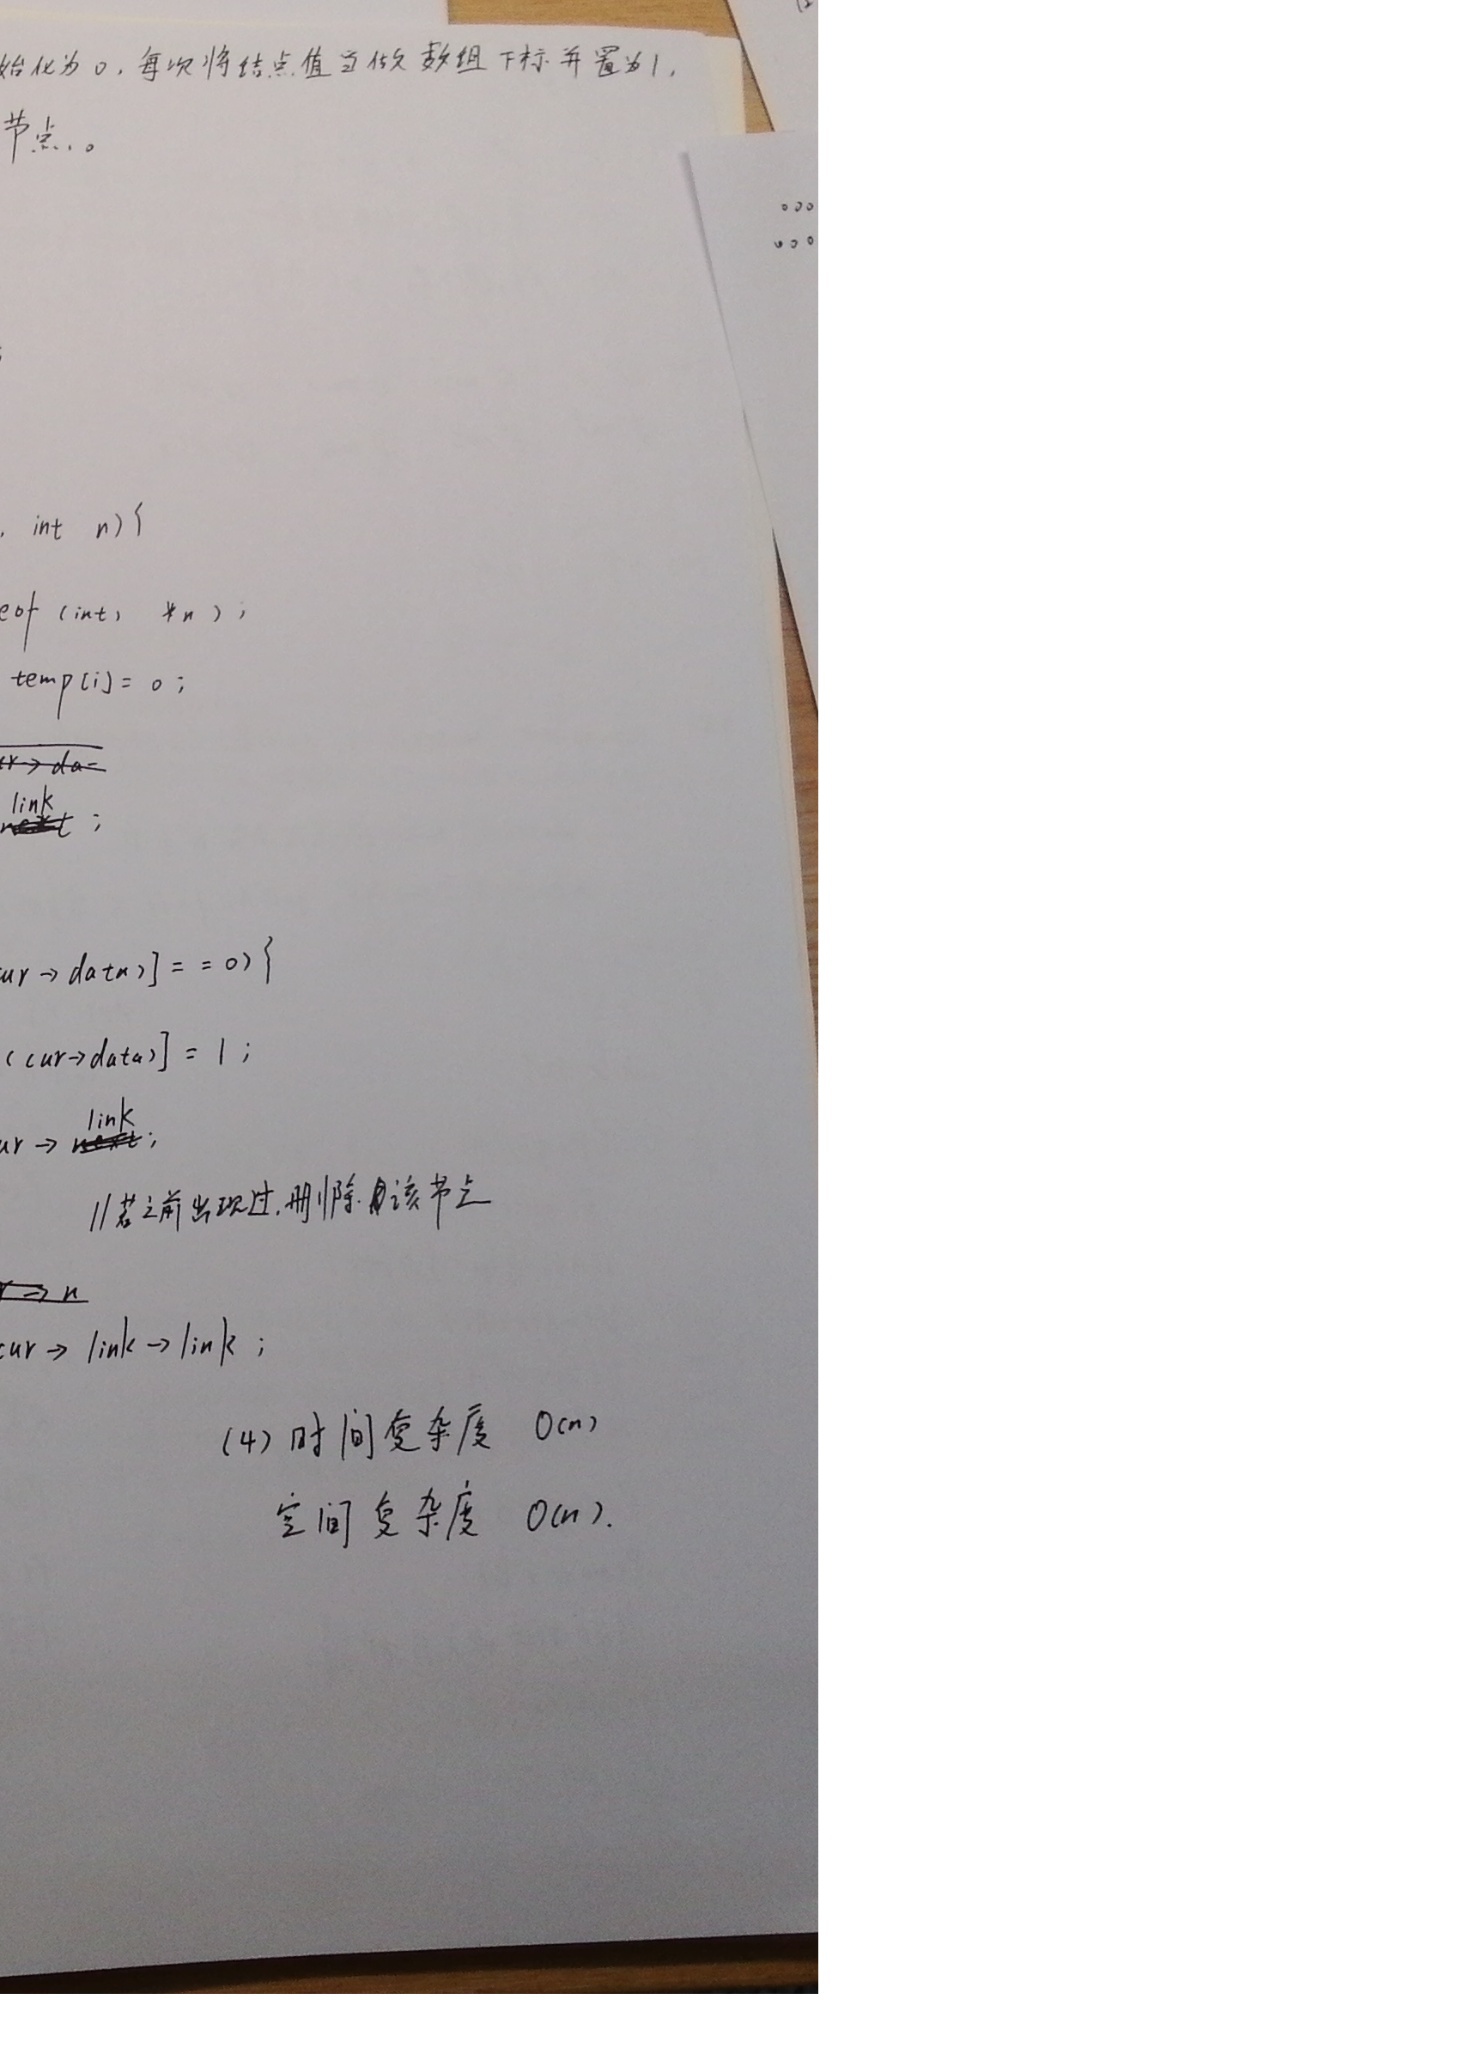 始化为0,每次将结点值当做数组下标并置为1,
节点。
;
, int n){
eof(int) *n);
temp[i]=0;
ur→da=
link
next;
ur→data)]==0){
(cur→data)]=1;
link
ur→next;
//若之前出现过,删除该节点
r→n
cur→link→link;
(4)时间复杂度 O(n)
空间复杂度 O(n).